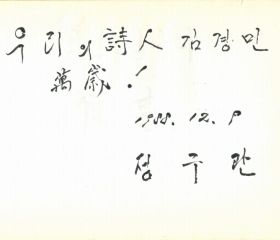 우리의 詩人 김경민
萬歲!
1988. 12. 9
정구관